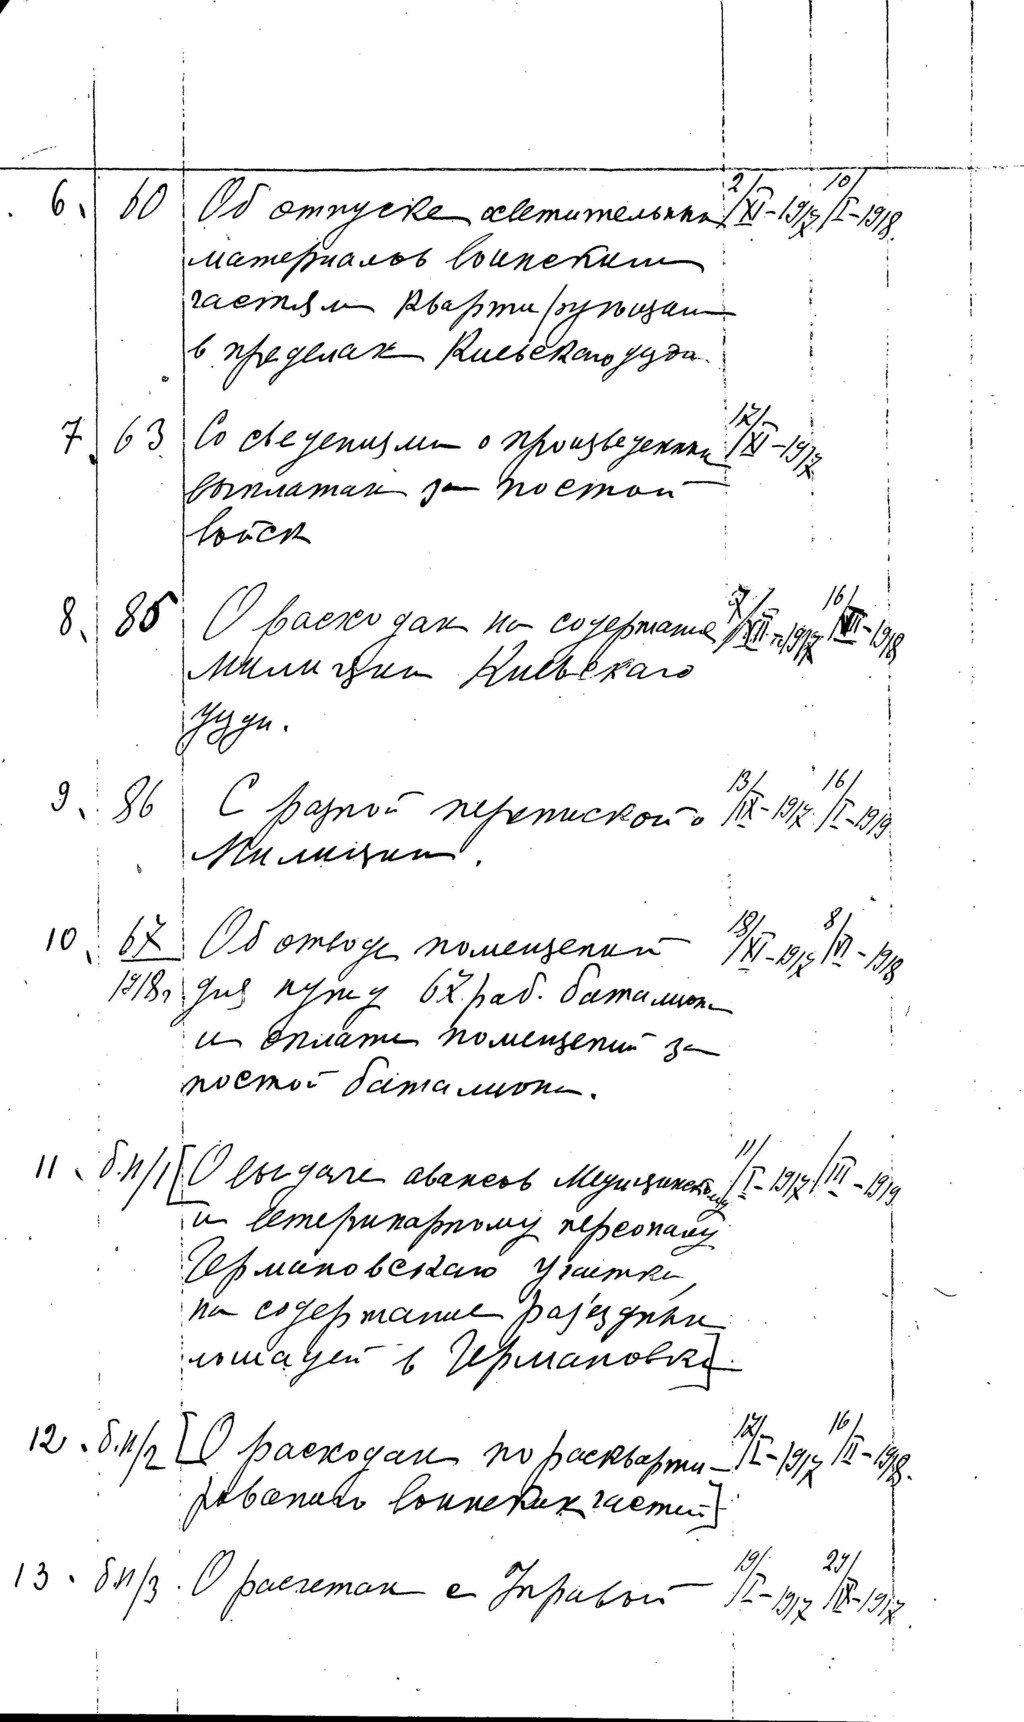 6. 60 Об отпуске осветительных 2/XI-1917 10/I-1918.
материалов воинским
частям квартирующим
в пределах Киевскаго уезда.
7. 63 Со сведениями о произведенных 17/XI-1917
выплатах за постой
войск
8. 85 О расходах на содержание 7/VII-1917 16/VII-1918
Милиции Киевскаго
уезда.
9. 86 С разной перепиской о 13/IX-1917 16/I-1919
Милиции.
10. 67 Об отводе помещений 18/XI-1917 8/VI-1918
1918г для нужд 67 раб. баталиона
и оплате помещений за
постой баталиона.
11. б.н/1 [О выдаче авансов Медицинскому 11/I-1917 /III-1919
и ветеринарному персоналу
Германовскаго участка,
на содержание раз'ездных
лошадей в Германовке]
12. б.н/2 [О расходах по раскварти- 17/I-1917 16/II-1918.
рованию воинских частей]
13. б.н/3. О расчетах с Управой 19/I-1917 29/IX-1917